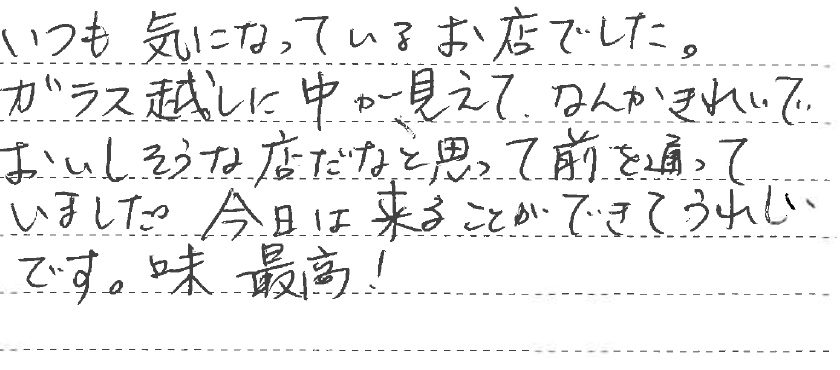 いつも気になっているお店でした。
ガラス越しに中が見えて、なんかきれいで
おいしそうな店だなと思って前を通って
いました。今日は来ることができてうれしい
です。味最高!